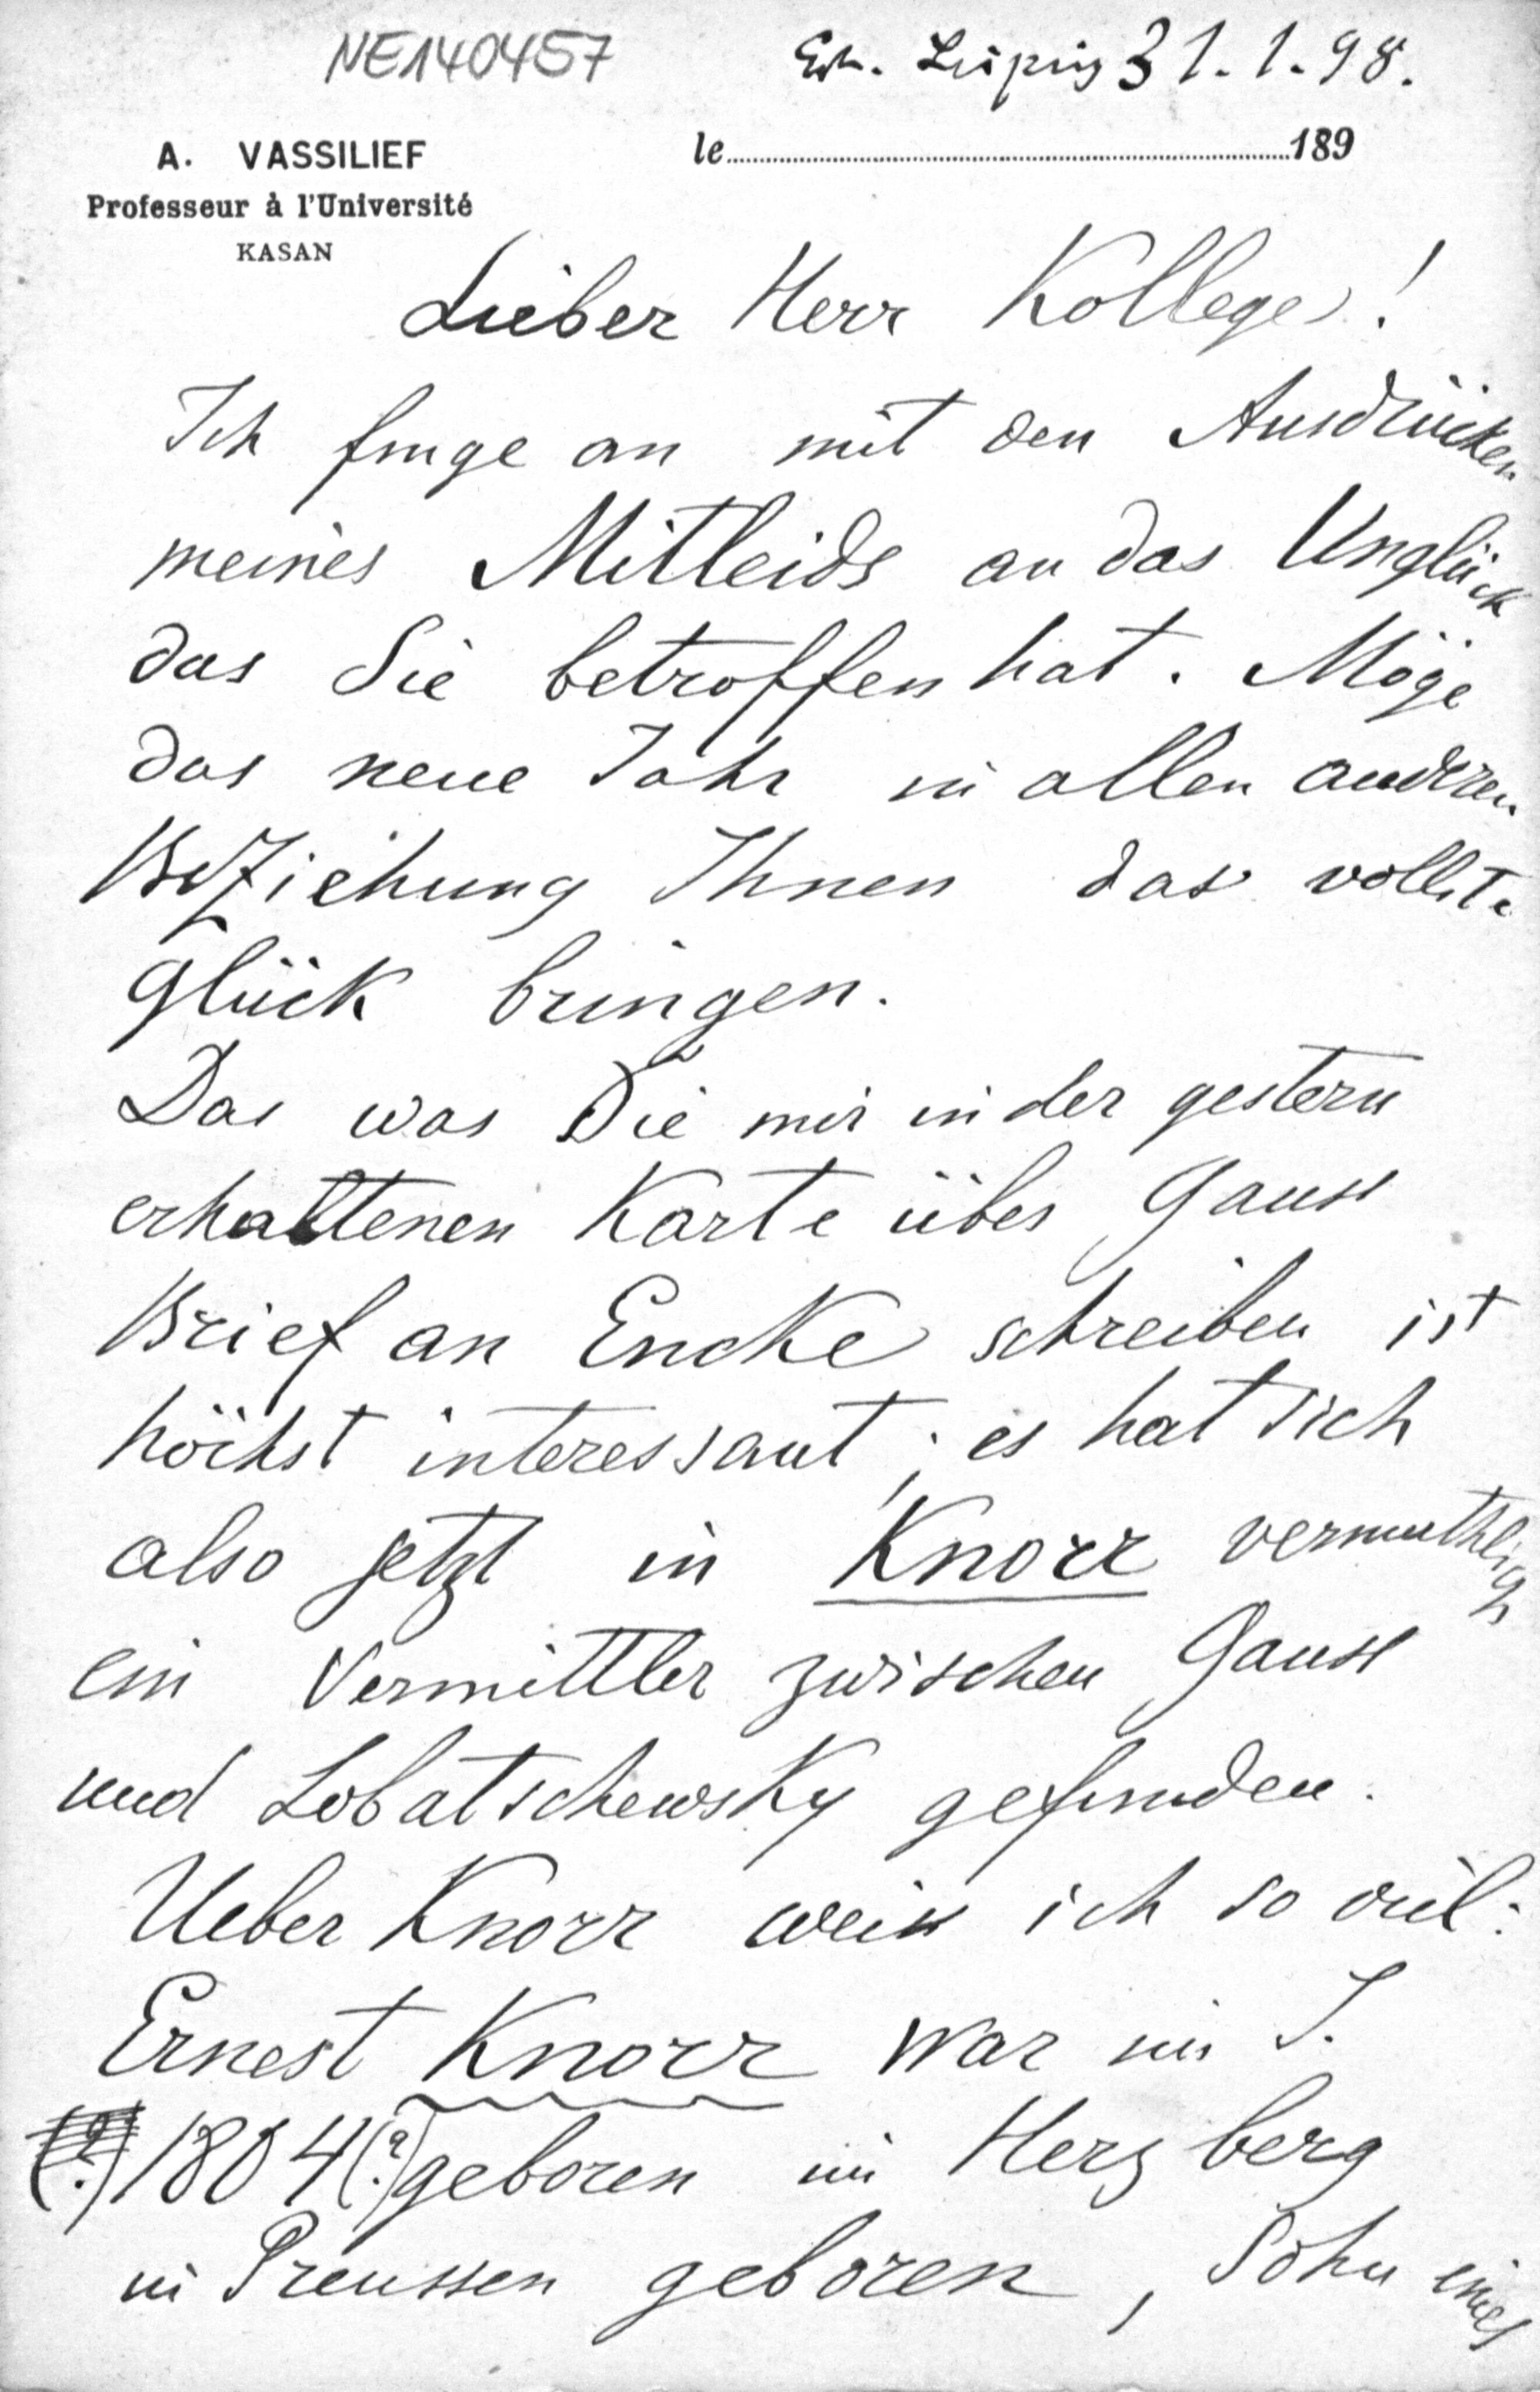 NE140457
Erh. Leipzig 31.1.98.
A. VASSILIEF
le 189
Professeur à l'Université
KASAN
Lieber Herr Kollege!
Ich fange an mit den Ausdrücken
meines Mitleids an das Unglück
das Sie betroffen hat. Möge
das neue Jahr in allen anderen
Beziehung Ihnen das vollste
Glück bringen.
Das was Sie mir in der gestern
erhaltenen Karte über Gauss
Brief an Encke schreiben ist
höchst interessant; es hat sich
also jetzt in Knorr vermuthlich
ein Vermittler zwischen Gauss
und Lobatschewsky gefunden.
Ueber Knorr weiss ich so viel:
Ernest Knorr war im J.
(?) 1804(?) geboren in Herzberg
in Preussen geboren, Sohn eines